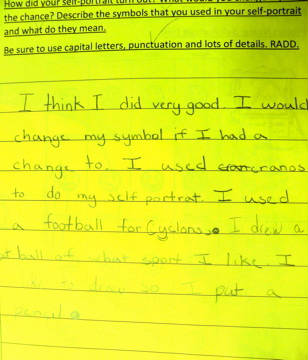 How did your self-portrait turn out? What would you
the chance? Describe the symbols that you used in your self-portrait
and what do they mean.
Be sure to use capital letters, punctuation and lots of details. RADD.
I think I did very good. I would
change my symbol if I had a
change to. I used cranranos
to do my self portrat. I used
a football for Cyclons. I drew a
ball of what sport I like. I
to draw so I put a